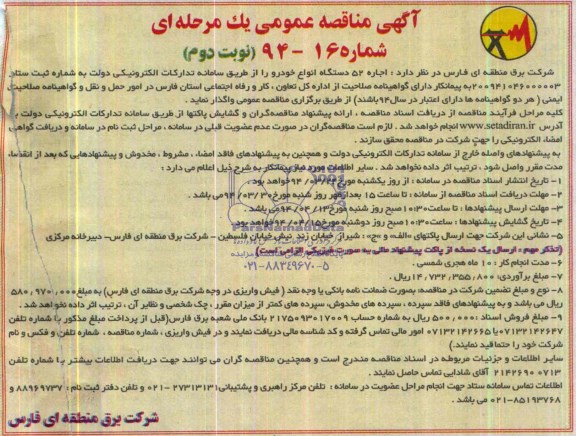 آگهی مناقصه عمومی یك مرحله ای
شماره ۱۶- ۹۴ (نوبت دوم)
شرکت برق منطقه ای فارس در نظر دارد : اجاره ۵۲ دستگاه انواع خودرو را از طریق سامانه تدارکات الکترونیکی دولت به شماره ثبت ستاد
۲۰۰۹۴۱۰۴۶۰۰۰۰۰۳ به پیمانکار دارای گواهینامه صلاحیت از اداره کل تعاون ، کار و رفاه اجتماعی استان فارس در امور حمل و نقل و گواهینامه صلاحیت
ایمنی ( هر دو گواهینامه ها دارای اعتبار در سال ۹۴ باشند) از طریق برگزاری مناقصه عمومی واگذار نماید .
کلیه مراحل فرآیند مناقصه از دریافت اسناد مناقصه ، ارائه پیشنهاد مناقصه‌گران و گشایش پاکتها از طریق سامانه تدارکات الکترونیکی دولت به
آدرس www.setadiran.ir انجام خواهد شد . لازم است مناقصه‌گران در صورت عدم عضویت قبلی در سامانه ، مراحل ثبت نام در سامانه و دریافت گواهی
امضاء الکترونیکی را جهت شرکت در مناقصه محقق سازند .
به پیشنهادهای واصله خارج از سامانه تدارکات الکترونیکی دولت و همچنین به پیشنهادهای فاقد امضاء ، مشروط ، مخدوش و پیشنهادهایی که بعد از انقضاء
مدت مقرر واصل شود ، ترتیب اثر داده نخواهد شد . سایر اطلاعات مورد نیاز پیمانکار به شرح ذیل اعلام می دارد :
۱- تاریخ انتشار اسناد مناقصه در سامانه : از روز یکشنبه مورخ ۹۴/۰۳/۲۴ خواهد بود .
۲- مهلت دریافت اسناد مناقصه از سامانه : تا ساعت ۱۵ بعدازظهر روز شنبه مورخ ۹۴/۰۳/۳۰ می باشد .
۳- مهلت ارسال پیشنهادها : تا ساعت ۱۰:۳۰ صبح روز شنبه مورخ ۹۴/۰۴/۱۳ می باشد .
۴- تاریخ گشایش پیشنهادها : ساعت ۱۰:۳۰ صبح روز دوشنبه مورخ ۹۴/۰۴/۱۵ خواهد بود .
۵- نشانی این شرکت جهت ارسال پاکتهای «الف» و «ج» : شیراز، خیابان زند، نبش خیابان فلسطین - شرکت برق منطقه ای فارس- دبیرخانه مرکزی
(تذکر مهم : ارسال یک نسخه از پاکت پیشنهاد مالی به صورت فیزیکی الزامی است)
۶- مدت انجام کار : ۱۰ ماه هجری شمسی .
۷- مبلغ برآوردی: ۱۴,۷۳۲,۳۵۵,۸۰۰ ریال .
۸- نوع و مبلغ تضمین شرکت در مناقصه: بصورت ضمانت نامه بانکی یا وجه نقد ( فیش واریزی در وجه شرکت برق منطقه ای فارس) به مبلغ ۵۸۰,۹۷۰,۰۰۰
ریال می باشد و به پیشنهادهای فاقد سپرده ، سپرده های مخدوش، سپرده های کمتر از میزان مقرر ، چک شخصی و نظایر آن ، ترتیب اثر داده نخواهد شد .
۹- مبلغ فروش اسناد : ۵۰۰,۰۰۰ ریال به شماره حساب ۲۱۷۵۰۹۳۰۱۷۰۰۹ بانک ملی شعبه برق فارس(قبل از پرداخت مبلغ مذکور با شماره تلفن
۰۷۱۳۲۱۴۲۶۴۷ یا ۰۷۱۳۲۱۴۲۶۶۵ امور مالی تماس گرفته و کد شناسه مالی دریافت نمایند و در فیش واریزی ، شماره مناقصه ، شماره تلفن و فکس و نام
شرکت خود را حتما قید نمایند.)
سایر اطلاعات و جزئیات مربوطه در اسناد مناقصه مندرج است و همچنین مناقصه گران می توانند جهت دریافت اطلاعات بیشتر با شماره تلفن
۰۷۱۳ ۲۱۴۲۶۹۰ آقای شادایی تماس حاصل نمایند .
اطلاعات تماس سامانه ستاد جهت انجام مراحل عضویت در سامانه : تلفن مرکز راهبری و پشتیبانی: ۲۷۳۱۳۱۳۱-۰۲۱ و تلفن دفتر ثبت نام : ۸۸۹۶۹۷۳۷ و
۰۲۱-۸۵۱۹۳۷۶۸ می باشد .
شرکت برق منطقه ای فارس
ParsNamadData
۰۲۱-۸۸۳۴۹۶۷۰-۵